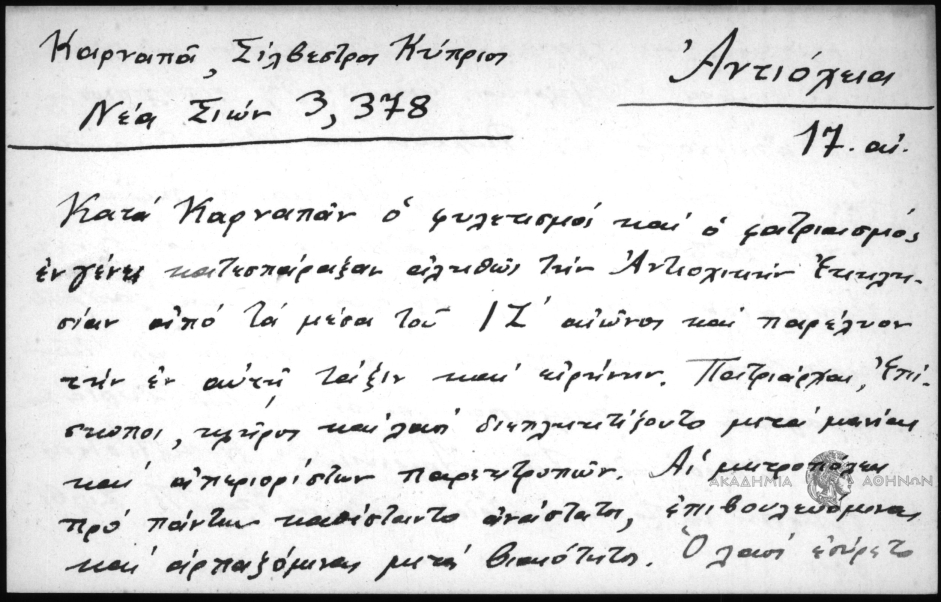 Καρναπᾶ, Σίλβεστρος Κύπριος
Νέα Σιών 3, 378
Ἀντιόχεια
17. αἰ.
Κατά Καρναπᾶν ὁ φυλετισμός καί ὁ φατριασμός
ἐν γένει κατεσπάραξαν ἀληθῶς τήν Ἀντιοχικήν Ἐκκλη-
σίαν ἀπό τά μέσα τοῦ ΙΖ΄ αἰῶνος καί παρέλυον
τήν ἐν αὐτῇ τάξιν καί εἰρήνην. Πατριάρχαι, Ἐπί-
σκοποι, κλῆρος καί λαός διεπληκτίζοντο μετά μανίας
καί ἀπεριορίστων παρεκτροπῶν. Αἱ μητροπόλεις
πρό πάντων καθίσταντο ἀνάστατοι, ἐπιβουλευόμεναι
καί ἁρπαζόμεναι μετά βιαιότητος. Ὁ λαός ἐσύρετο
ΑΚΑΔΗΜΙΑ ΑΘΗΝΩΝ